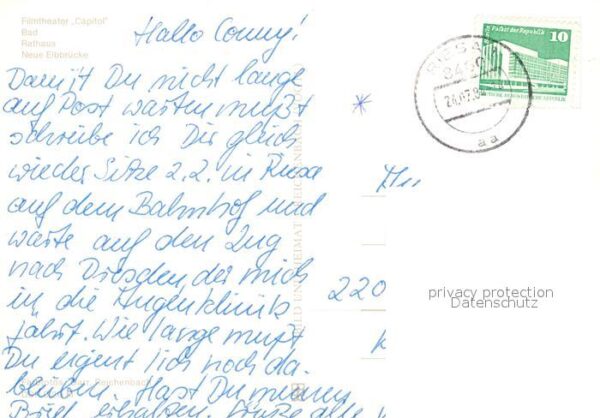 Filmtheater „Capitol"
Bad
Rathaus
Neue Elbbrücke
Hallo Conny!
Damit Du nicht lange
auf Post warten mußt
schreibe ich Dir gleich
wieder Sitze z.Z. in Riesa
auf dem Bahnhof und
warte auf den Zug
nach Dresden der mich
in die Augenklinik
fährt. Wie lange mußt
Du eigentlich noch da
bleiben. Hast Du meinen
Brief erhalten. Grüße alle
Palast der Republik
10
RIESA 1
8400
aa
220
BILD UND HEIMAT REICHENBACH
Reichenbach
privacy protection
Datenschutz